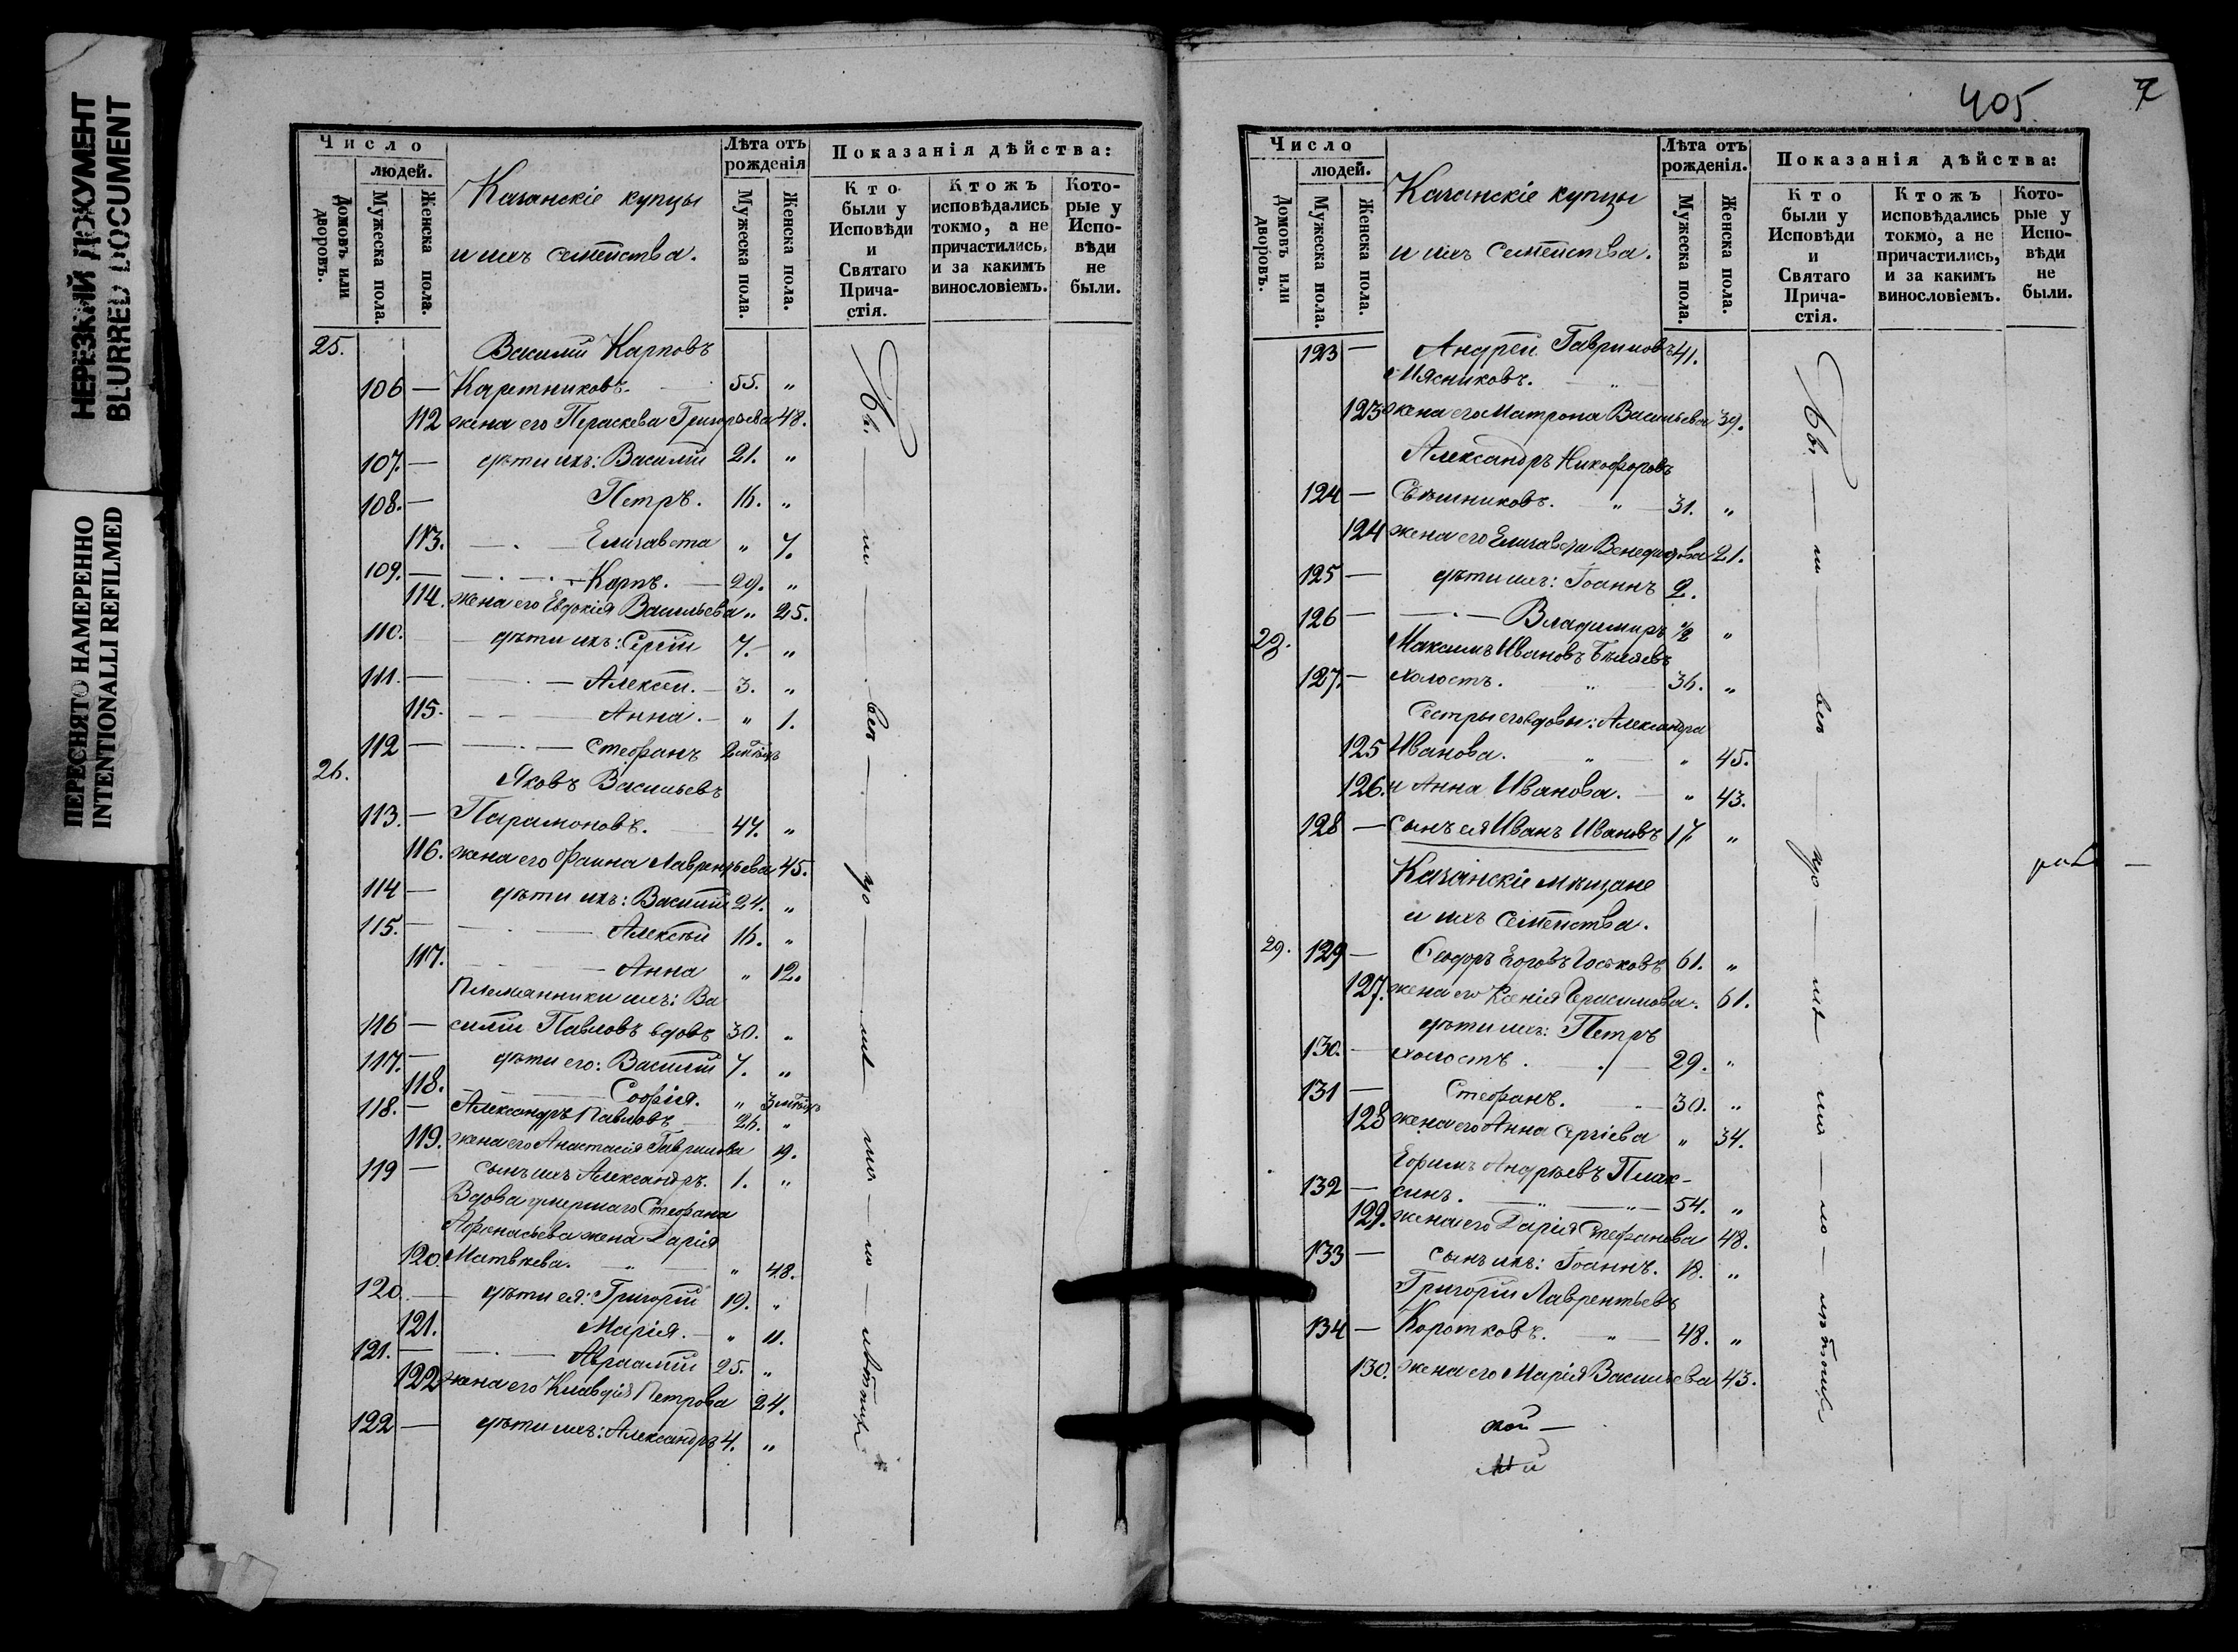 НЕРЕЗКИЙ ДОКУМЕНТ
BLURRED DOCUMENT
ПЕРЕСНЯТО НАМЕРЕННО
INTENTIONALLI REFILMED
Число
людей.
Домовъ или дворовъ.
Мужеска пола.
Женска пола.
Казанскіе купцы
и ихъ семейства.
Лѣта отъ рожденія
Мужеска пола.
Женска пола.
Показанія дѣйства:
Кто были у Исповѣди и Святаго Причастія.
Ктожъ исповѣдались токмо, а не причастились, и за какимъ винословіемъ.
Которые у Исповѣди не были.
25. Василій Карповъ
106 — Каретниковъ. 55. „
112 жена его Параскева Григорьева 48.
107. — дѣти ихъ: Василій 21. „
108. — Петръ. 16. „
113. Елизавета „ 7.
109. — Карпъ. 29. „
114. жена его Евдокія Васильева „ 25.
110. — дѣти ихъ: Сергій 7. „
111. — Алексѣй. 3. „
115. Анна. „ 1.
112 — Стефанъ 2 мѣсяц
26. Яковъ Васильевъ
113. — Парамоновъ. 47. „
116. жена его Фаина Лаврентьева 45.
114 — дѣти ихъ: Василій 24. „
115. — Алексѣй 16. „
117. Анна „ 12.
Племянники ихъ: Ва
116 — силій Павловъ вдовъ 30. „
117. — дѣти его: Василій 7. „
118. Софія. „ 3 мѣсяц
118. — Александръ Павловъ 26. „
119. жена его Анастасія Гаврилова 19.
119 — сынъ ихъ Александръ. 1. „
Вдова умершаго Стефана
Афонасьева жена Дарія
120. Матвѣева. „ „ 48.
120. — дѣти ея: Григорій 19. „
121. Марія. „ 11.
121. — Авраамій 25. „
122 жена его Клавдія Петрова 24.
122 — дѣти ихъ: Александръ 4. „
405.
7
Число
людей.
Домовъ или дворовъ.
Мужеска пола.
Женска пола.
Казанскіе купцы
и ихъ семейства.
Лѣта отъ рожденія.
Мужеска пола.
Женска пола.
Показанія дѣйства:
Кто были у Исповѣди и Святаго Причастія.
Ктожъ исповѣдались токмо, а не причастились, и за какимъ винословіемъ.
Которые у Исповѣди не были.
123 — Андрей Гавриловъ 41.
Мясниковъ. „
123 жена его Матрона Васильева 39.
Александръ Никифоровъ
124 — Свѣшниковъ. „ 31. „
124 жена его Елизавета Венедиктова 21.
125 — дѣти ихъ: Іоаннъ 2.
126 — Владимиръ 1/2 „
28. Максимъ Ивановъ Бѣляевъ
127. — холостъ. „ 36. „
Сестры его вдовы: Александра
125 Иванова. „ „ 45.
126. и Анна Иванова. „ 43.
128 — сынъ ея Иванъ Ивановъ 17. „
Казанскіе мѣщане
и ихъ семейства.
29. 129 — Ѳеодоръ 61. „
127. жена его Ксенія Герасимова. 61.
дѣти ихъ: Петръ
130. — холостъ. 29. „
131 — Стефанъ. „ 30. „
128 жена его Анна Сергіева „ 34.
Ефимъ Андреевъ Плак-
132 — синъ. „ „ 54. „
129. жена его Дарія Стефанова 48.
133 — сынъ ихъ: Іоаннъ. 18. „
Григорій Лаврентьевъ
134 — Коротковъ. „ 48. „
130. жена его Марія Васильева 43.